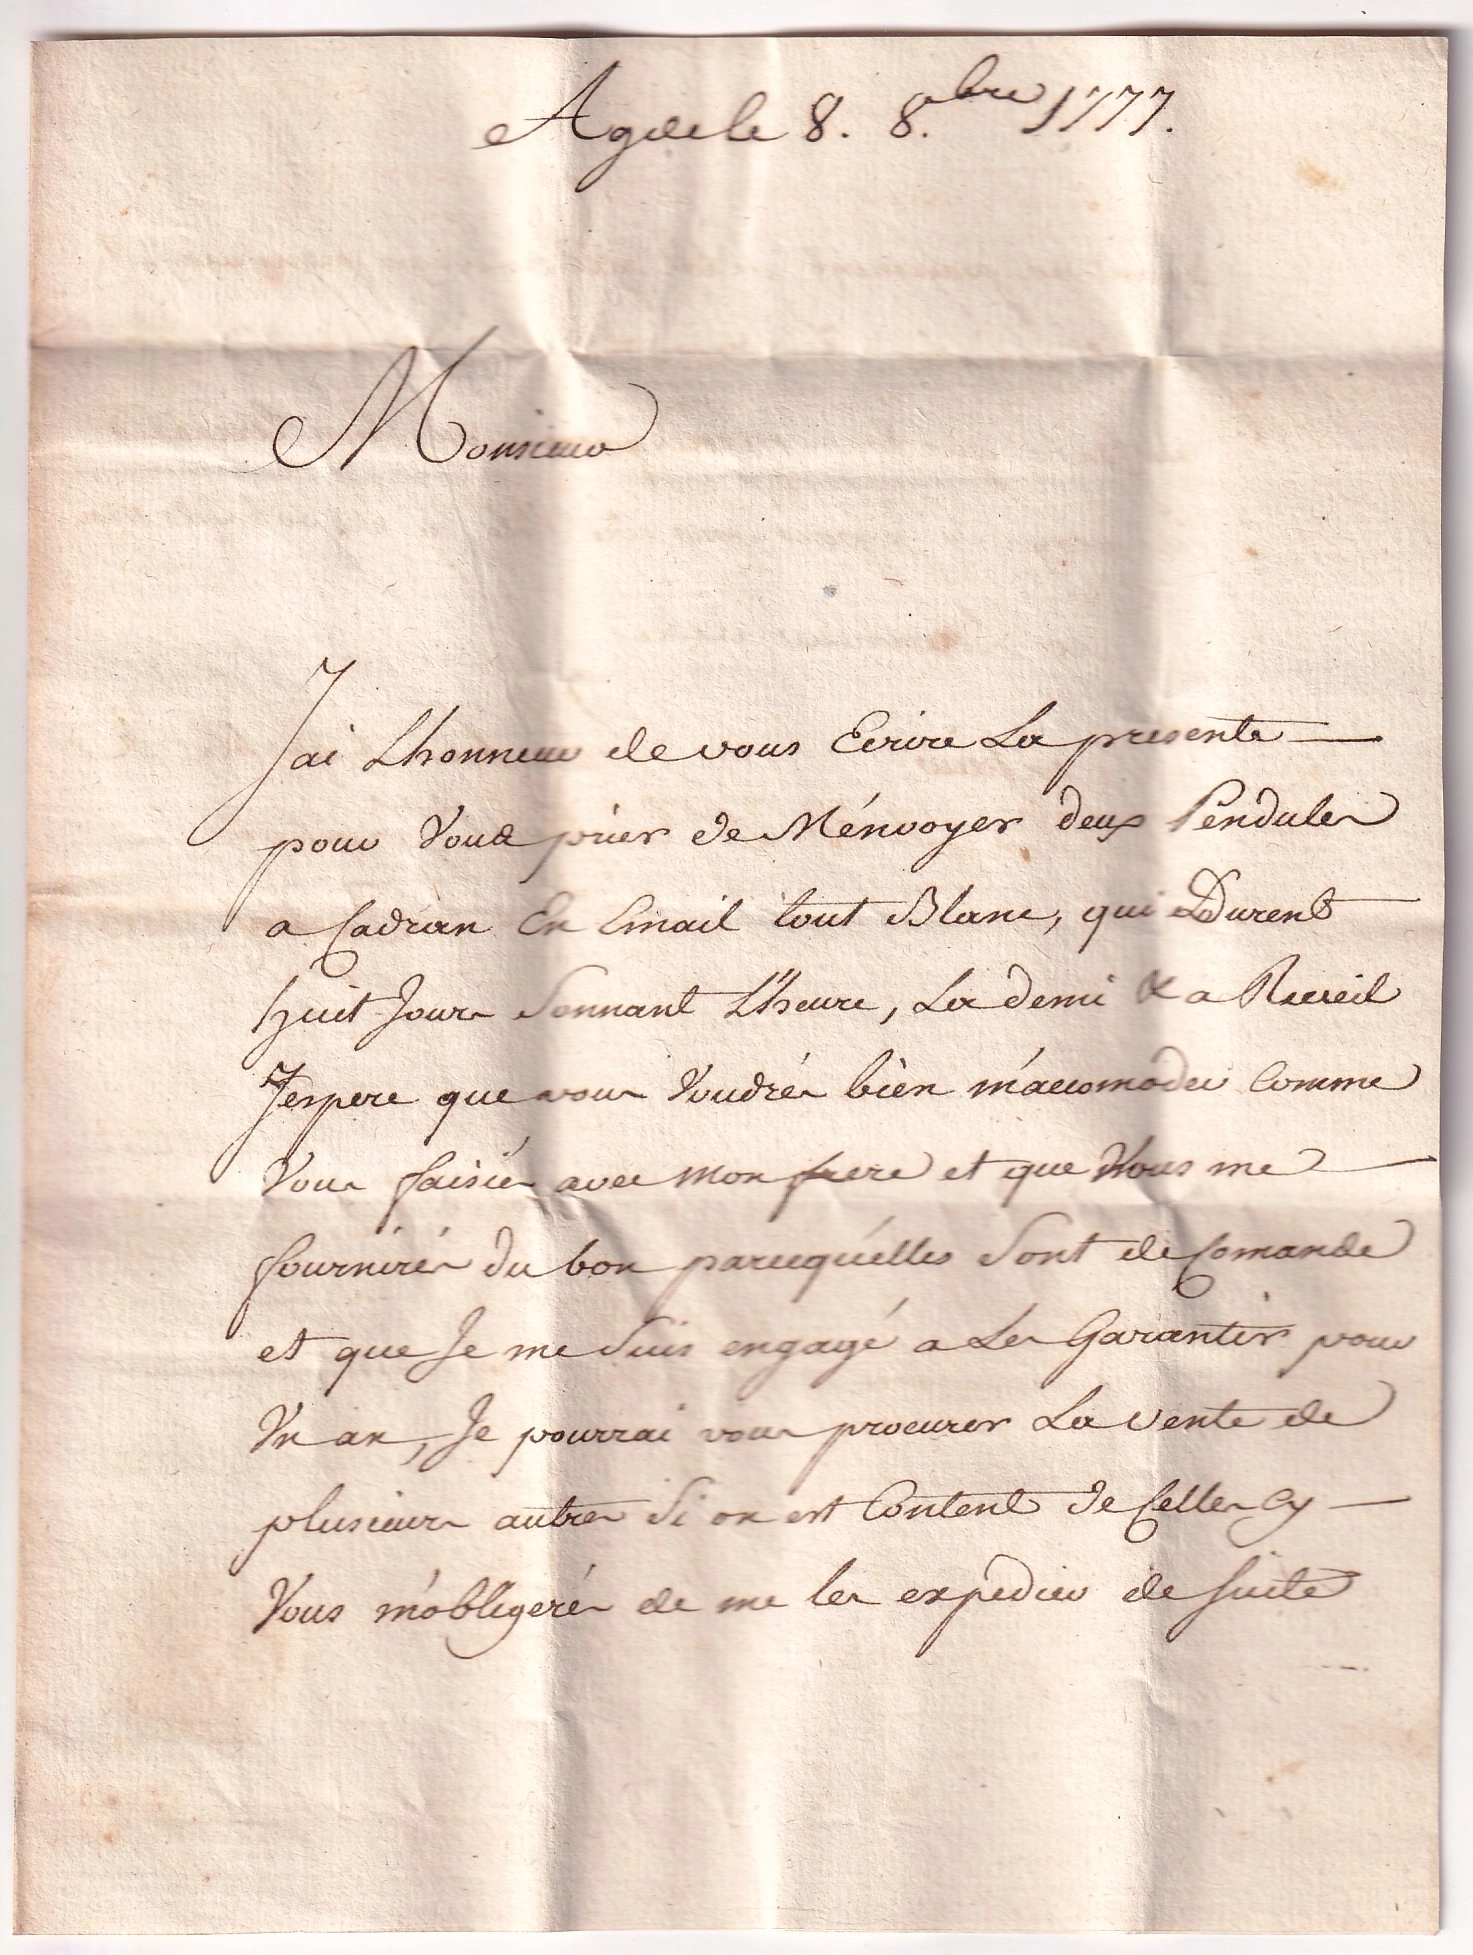 Agde le 8. 8.bre 1777.
Monsieur
Jai Lhonneur de vous Ecrire La presente
pour Vous prier de M'énvoyer deux Pendules
a Cadran En Email tout Blanc, qui Durent
huit Jours Sonnant L'heure, La demi & a Reveil
Jespere que vous Voudrés bien m'accomoder Comme
Vous faisiés avec mon frere et que Vous me
fournirés du bon parcequ'elles Sont de Comande
et que Je me Suis engagé a Les Garantir pour
Un an, Je pourrai vous procurer La vente de
plusieurs autres Si on est Content de Celles Cy
Vous m'obligerés de me les expedier de Suite